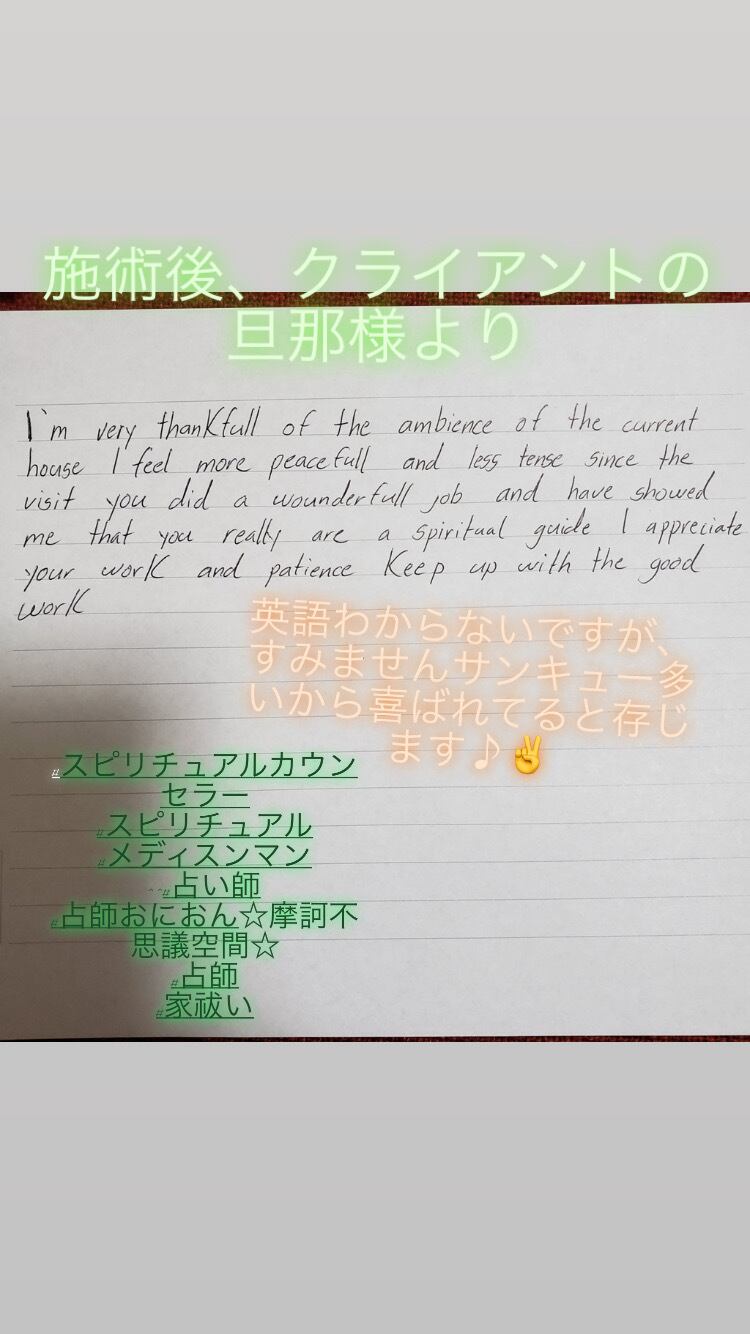 施術後、クライアントの
旦那様より
I'm very thankfull of the ambience of the current
house I feel more peacefull and less tense since the
visit you did a wounderfull job and have showed
me that you really are a spiritual guide I appreciate
your work and patience Keep up with the good
work
英語わからないですが、
すみませんサンキュー多
いから喜ばれてると存じ
ます♪✌️
#スピリチュアルカウン
セラー
#スピリチュアル
#メディスンマン
^^#占い師
#占師おにおん☆摩訶不
思議空間☆
#占師
#家祓い